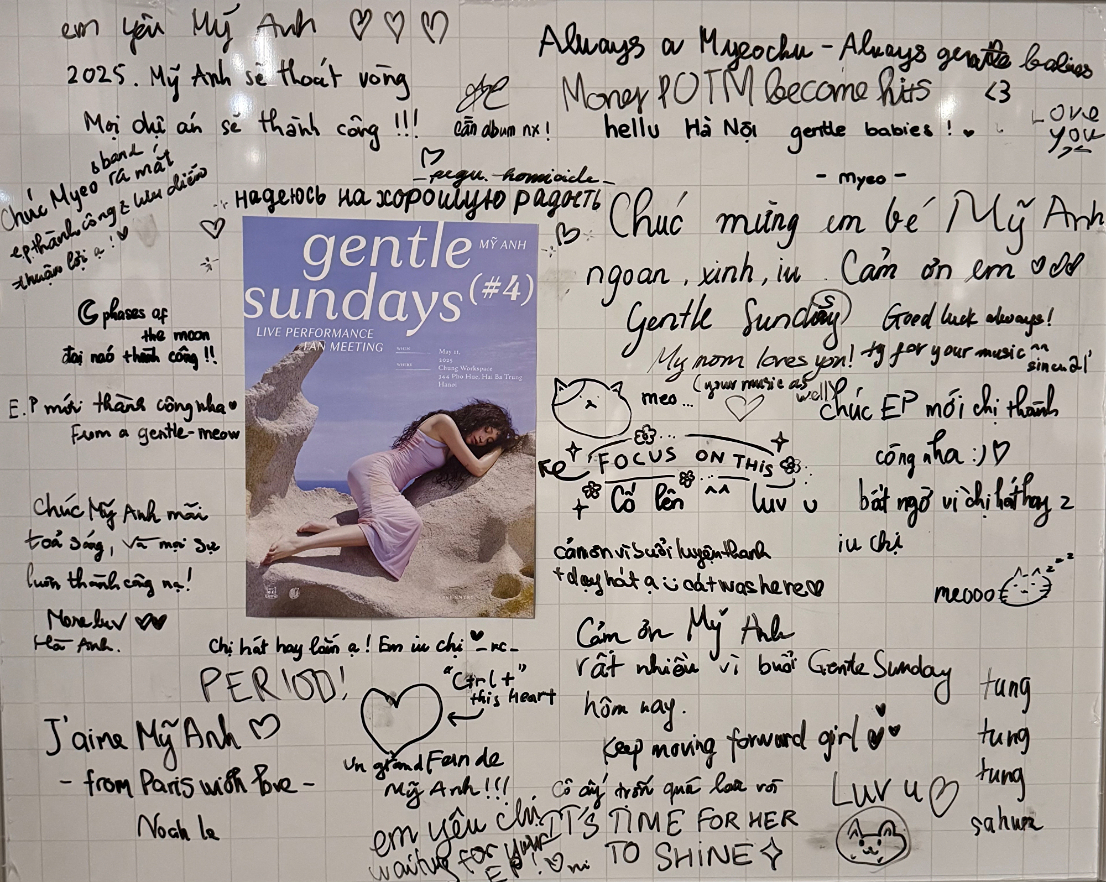 em yêu Mỹ Anh ♡ ♡ ♡
2025. Mỹ Anh sẽ thoát vòng
Mọi dự án sẽ thành công !!!
cần album nx !
Always a Myeochu - Always gentle babies
Money POTM become hits <3
hellu Hà Nội gentle babies ! ♥
Love
you
- myeo -
Chúc Myeo ra mắt
ep thành công & lưu diễn
thuận lợi ạ ! ♥
надеюсь на хорошую радость
Chúc mừng em bé Mỹ Anh
ngoan, xinh, iu Cảm ơn em ♡♡♡
Gentle Sundays
Good luck always!
My mom loves you!
(your music as
well)
ty for your music ^^
since 21'
gentle
MỸ ANH
sundays (#4)
LIVE PERFORMANCE
FAN MEETING
WHEN
May 11,
2025
WHERE
Chung Workspace
344 Pho Hue, Hai Ba Trung
Hanoi
phases of
the moon
đại náo thành công !!
E.P mới thành công nha ♥
From a gentle-meow
Chúc Mỹ Anh mãi
toả sáng, và mọi sự
luôn thành công nạ!
More luv ♥♥
Hà Anh.
meo...
FOCUS ON THIS
Cố lên ^^ luv u
Chúc EP mới chị thành
công nha :) ♡
bất ngờ vì chị hát hay 2
iu chị
cảm ơn vì buổi luyện thanh
+ dạy hát ạ cát was here ♡
meooo
zzz
Chị hát hay lắm ạ! Em iu chị ♥ -nc-
PERIOD!
"Ctrl +"
this heart
J'aime Mỹ Anh ♡
- from Paris with love -
Un grand Fan de
Mỹ Anh !!!
em yêu chị
waiting for your
EP! ♡
Cảm ơn Mỹ Anh
rất nhiều vì buổi Gentle Sunday
hôm nay.
Keep moving forward girl ♥♥
Cô ấy trốn quá lâu rồi
IT'S TIME FOR HER
TO SHINE
Luv u ♡
tung
tung
tung
sahur